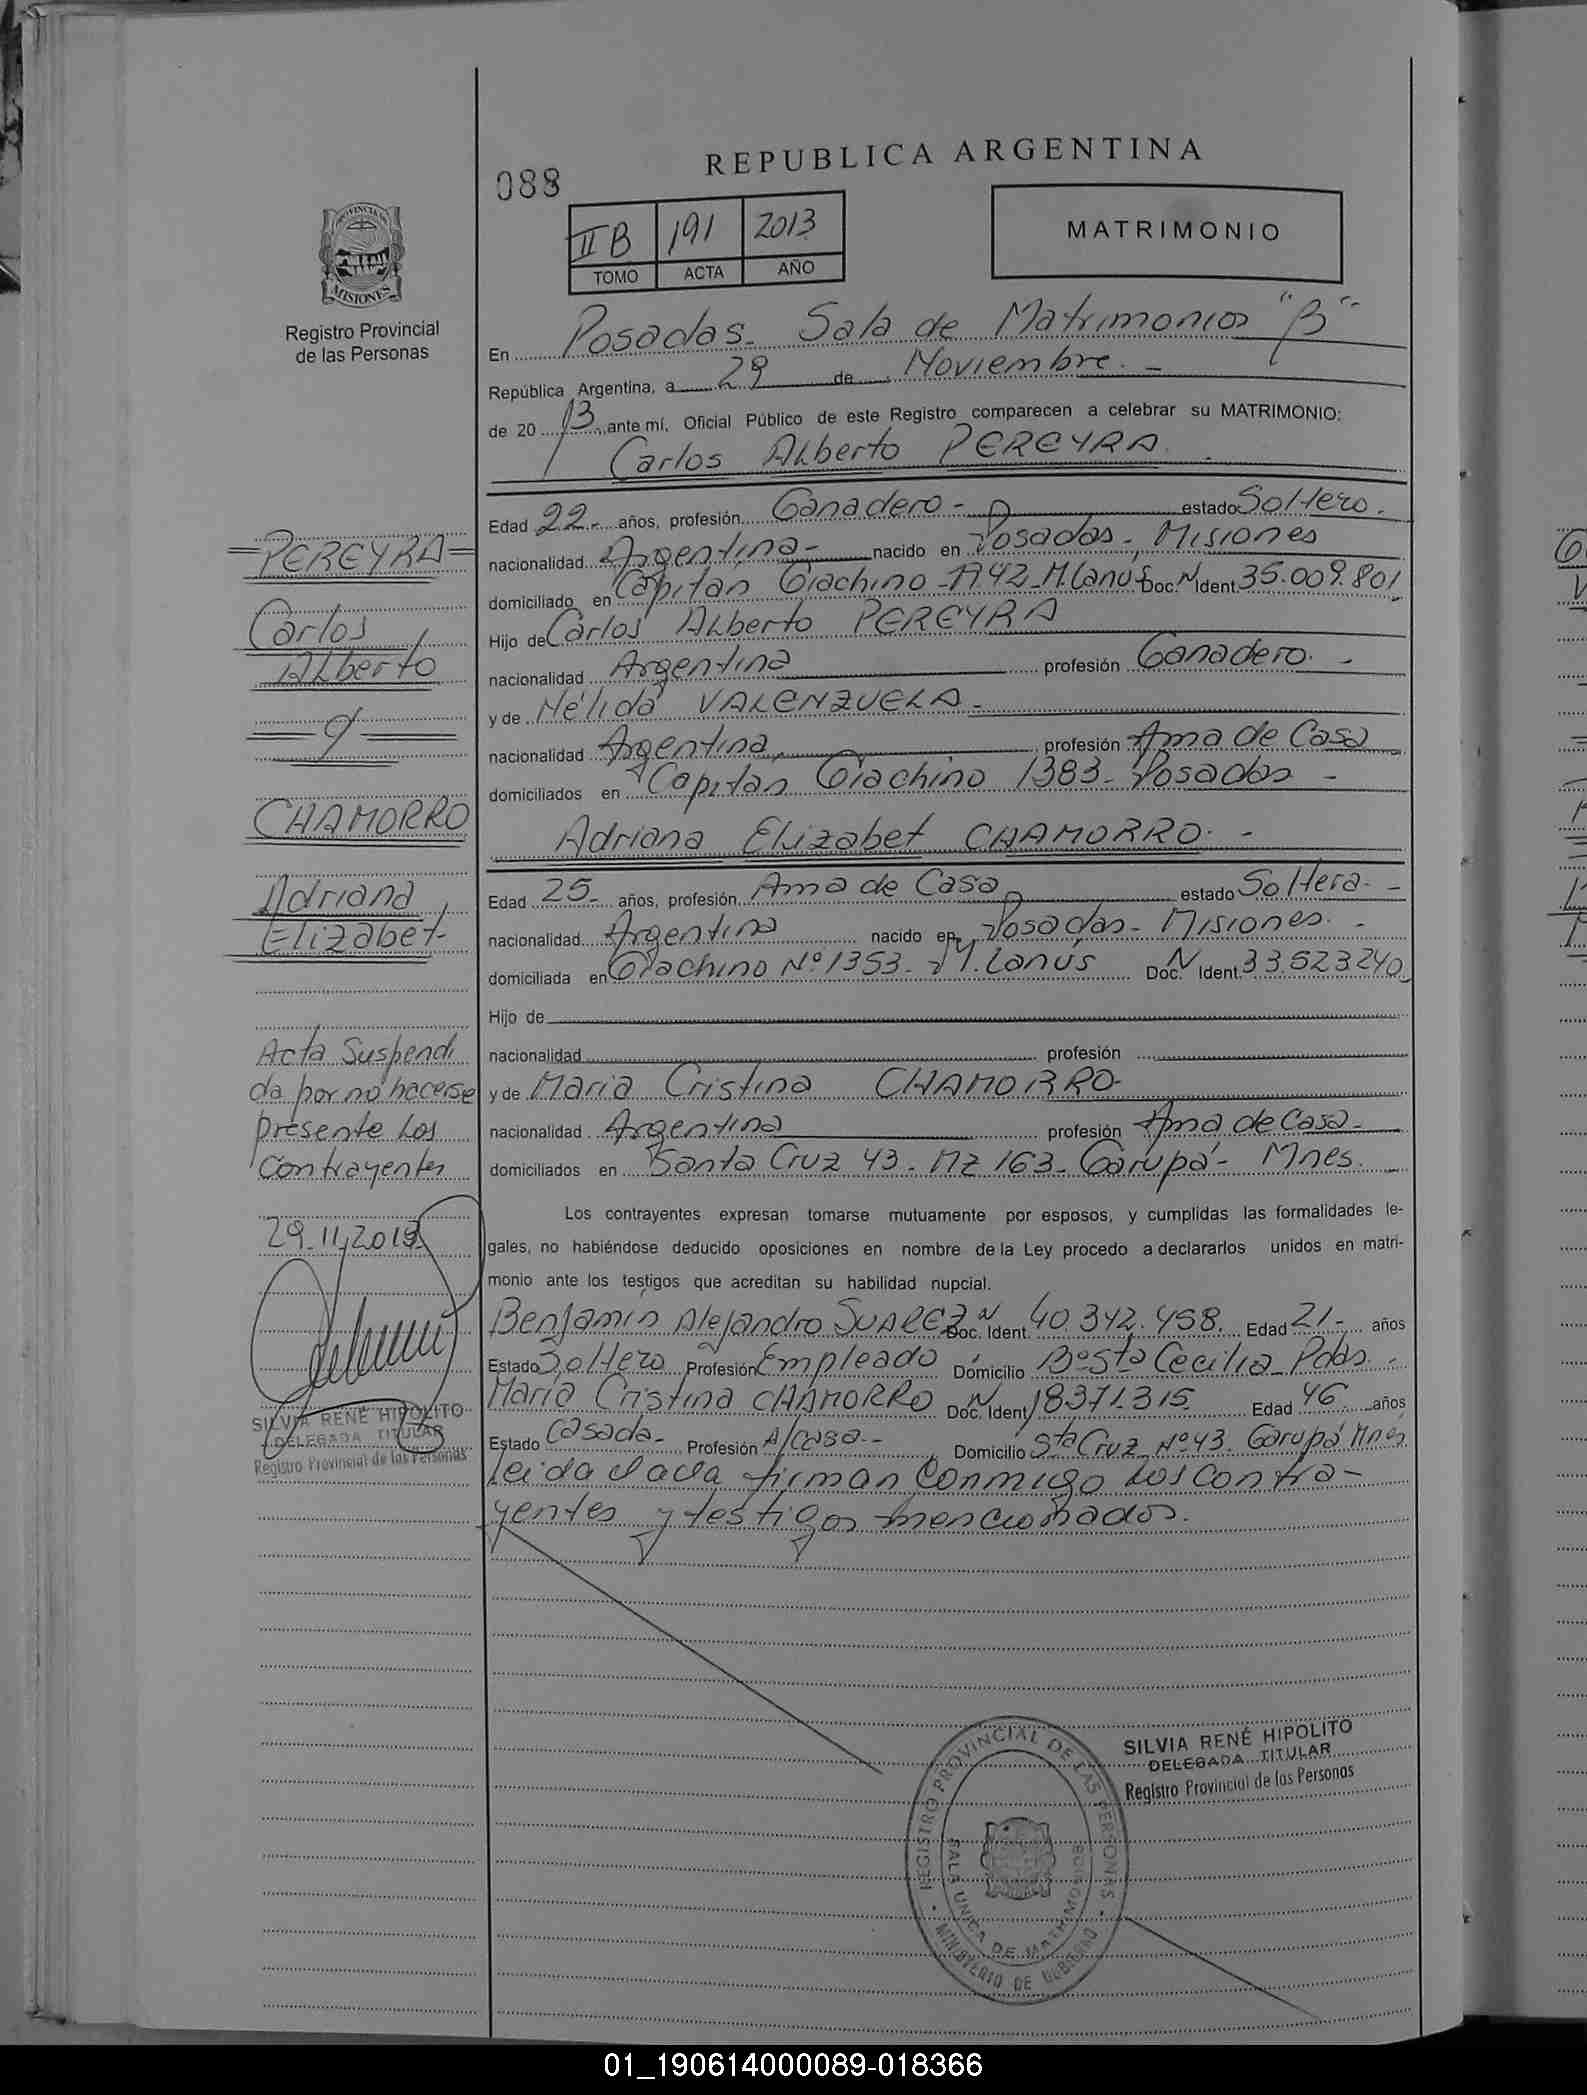 REPUBLICA ARGENTINA
088
II B 191 2013
TOMO ACTA AÑO
MATRIMONIO
PROVINCIA DE
MISIONES
Registro Provincial
de las Personas
En Posadas - Sala de Matrimonios "B"
República Argentina, a 29 de Noviembre. -
de 20 13 ante mí, Oficial Público de este Registro comparecen a celebrar su MATRIMONIO:
Carlos Alberto PEREYRA.
Edad 22 - años, profesión Ganadero - estado Soltero.
nacionalidad Argentina - nacido en Posadas - Misiones
domiciliado en Capitán Giachino - A42 - M. Lanús Doc. N Ident. 35.009.801
Hijo de Carlos Alberto PEREYRA
nacionalidad Argentina profesión Ganadero. -
y de Nélida VALENZUELA -
nacionalidad Argentina profesión Ama de Casa
domiciliados en Capitán Giachino 1383 - Posadas -
Adriana Elizabet CHAMORRO. -
Edad 25 - años, profesión Ama de Casa estado Soltera. -
nacionalidad Argentina nacido en Posadas - Misiones. -
domiciliada en Giachino Nº 1353 - M. Lanús Doc. N Ident. 33.523.240
Hijo de
nacionalidad profesión
y de Maria Cristina CHAMORRO -
nacionalidad Argentina profesión Ama de Casa -
domiciliados en Santa Cruz 43 - MZ 163 - Garupá - Mnes.
Los contrayentes expresan tomarse mutuamente por esposos, y cumplidas las formalidades le-
gales, no habiéndose deducido oposiciones en nombre de la Ley procedo a declararlos unidos en matri-
monio ante los testigos que acreditan su habilidad nupcial.
Benjamín Alejandro SUAREZ Doc. N Ident. 40.342.458. Edad 21 - años
Estado Soltero Profesión Empleado Domicilio Bº Sta Cecilia - Pdas.
Maria Cristina CHAMORRO Doc. N Ident. 18371.315 Edad 46 años
Estado Casada - Profesión A/casa - Domicilio Sta Cruz Nº 43. Garupá Mnes
Leida el acta firman conmigo los contra-
yentes y testigos mencionados.
PEREYRA
Carlos
Alberto
y
CHAMORRO
Adriana
Elizabet
Acta Suspendi
da por no hacerse
presente los
Contrayentes
29-11-2013
SILVIA RENÉ HIPOLITO
DELEGADA TITULAR
Registro Provincial de las Personas
SILVIA RENÉ HIPOLITO
DELEGADA TITULAR
Registro Provincial de las Personas
REGISTRO PROVINCIAL DE LAS PERSONAS
SALA UNICA DE MATRIMONIOS
MINISTERIO DE GOBIERNO
01_190614000089-018366